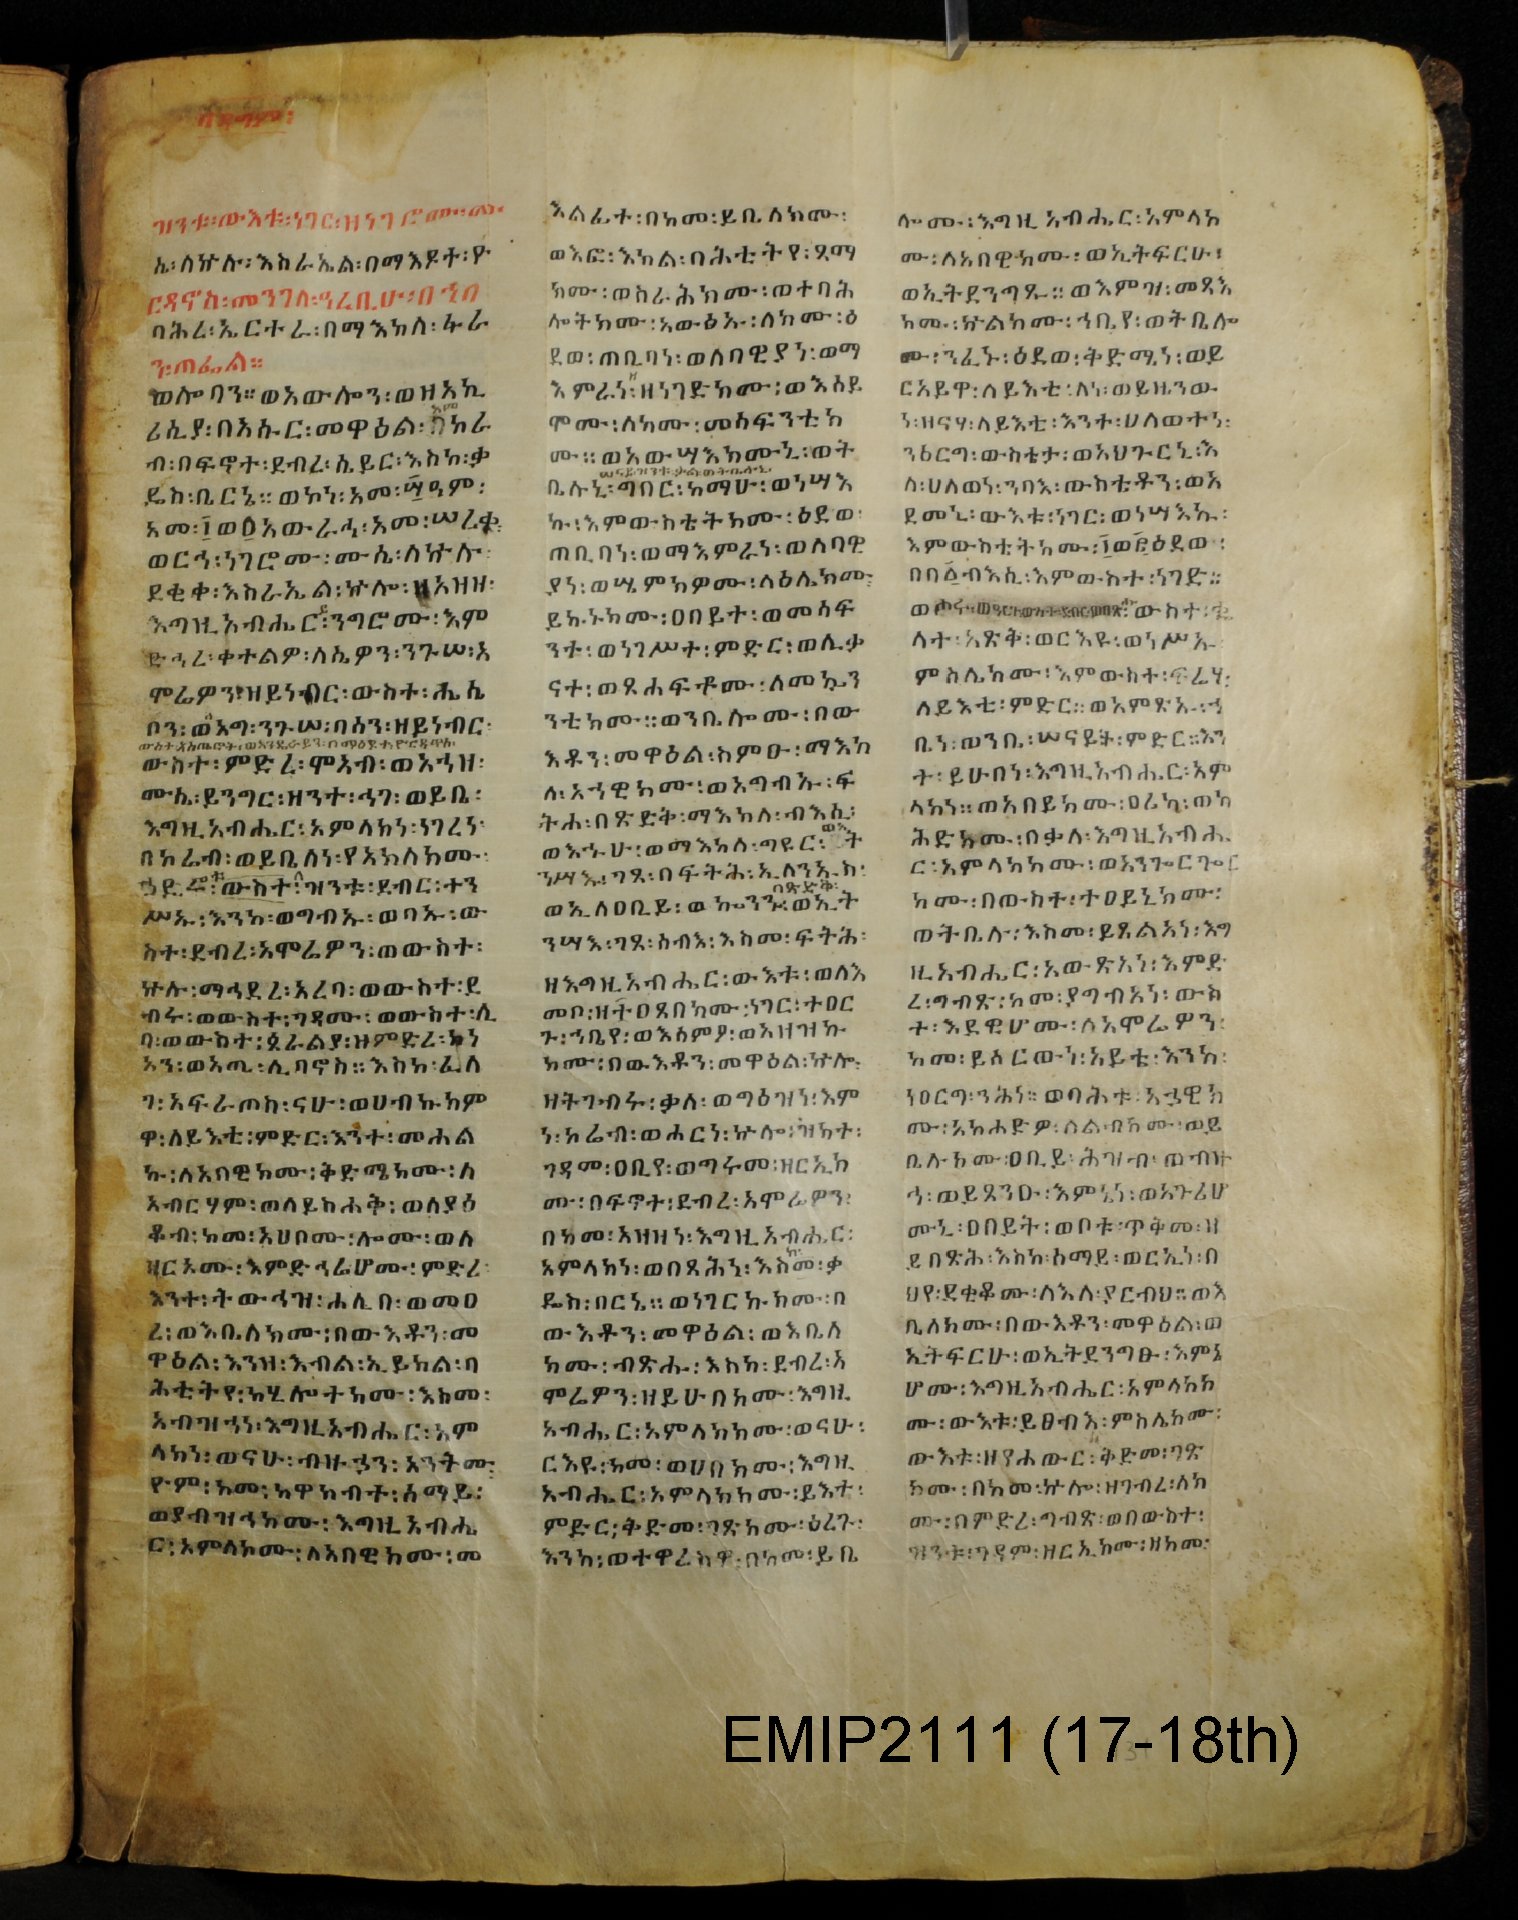 ዝንቱ፡ውእቱ፡ነገር፡ዘነገሮሙ፡ሙ
ሴ፡ለኵሉ፡እስራኤል፡በማእዶተ፡ዮ
ርዳኖስ፡መንገለ፡ዓረቢሁ፡በኀበ
ባሕረ፡ኤርተራ፡በማእከለ፡ፋራ
ን፡ጠፌል።
ወሎባን።ወአውሎን፡ወዝአኪ
ሪሲያ፡በአሑር፡መዋዕል፡ ከሬ
ብ፡በፍኖተ፡ደብረ፡ሴይር፡እስከ፡ቃ
ዴስ፡ቢርኔ። ወኮነ፡አመ፡ ዓም፡
አመ፡፲ወ፩አውራኅ፡አመ፡ሠረቀ፡
ወርኅ፡ነገሮሙ፡ሙሴ፡ለኵሉ፡
ደቂቀ፡እስራኤል፡ኵሎ፡ዘአዘዘ፡
እግዚአብሔር፡ንግሮሙ፡እም
ድኅረ፡ቀተልዎ፡ለሴዎን፡ንጉሠ፡አ
ሞሬዎን፡ዘይነብር፡ውስተ፡ሔሴ
ቦን፡ወአግ፡ንጉሠ፡ባሳን፡ዘይነብር፡
ውስተ፡ምድረ፡ሞአብ፡ወአኀዘ፡
ሙሴ፡ይንግር፡ዘንተ፡ሓገ፡ወይቤ፡
እግዚአብሔር፡አምላክነ፡ነገረነ፡
በኮሬብ፡ወይቤለነ፡የአክለክሙ፡
ኃዲ ፡ውስተ፡ዝንቱ፡ደብር፡ተን
ሥኡ፡እንከ፡ወግብኡ፡ወባኡ፡ው
ስተ፡ደብረ፡አሞሬዎን፡ወውስተ፡
ኵሉ፡ማኅደረ፡አረባ፡ወውስተ፡ደ
ብሩ፡ወውስተ፡ገዳሙ፡ወውስተ፡ሊ
ባ፡ወውስተ፡ጰራልያ፡ዘምድረ፡ከነ
አን፡ወአጢ፡ሊባኖስ።እስከ፡ፈለ
ገ፡አፍራጦስ፡ናሁ፡ወሀብኩክም
ዋ፡ለይእቲ፡ምድር፡እንተ፡መሐል
ኩ፡ለአበዊክሙ፡ቅድሜክሙ፡ለ
አብርሃም፡ወለይስሐቅ፡ወለያዕ
ቆብ፡ከመ፡አሀቦሙ፡ሎሙ፡ወለ
ዘርአሙ፡እምድኅሬሆሙ፡ምድረ፡
እንተ፡ትውኅዝ፡ሐሊበ፡ወመዐ
ረ፡ወእቤለክሙ፡በውእቶን፡መ
ዋዕል፡እንዘ፡እብል፡ኢይክል፡ባ
ሕቲትየ፡ከሂሎተክሙ፡እስመ፡
አብዝኀነ፡እግዚአብሔር፡አም
ላክነ፡ወናሁ፡ብዙኃን፡አንትሙ፡
ዮም፡ከመ፡ከዋክብተ፡ሰማይ፡
ወያብዝኅክሙ፡እግዚአብሔ
ር፡አምላክሙ፡ለአበዊክሙ፡መ
እልፊተ፡በከመ፡ይቤለክሙ፡
ወእፎ፡እክል፡ባሕቲትየ፡ጻማ
ክሙ፡ወስራሕክሙ፡ወተባሕ
ሎትክሙ፡አውፅኡ፡ለክሙ፡ዕ
ደወ፡ጠቢባነ፡ወለባዊያነ፡ወማ
እምራነ፡ዘነገድክሙ፡ወእሰይ
ሞሙ፡ለክሙ፡መሳፍንቲክ
ሙ። ወአውሣእክሙኒ፡ወት
ቤሉኒ፡ግበር፡ከማሁ፡ወነሣእ
ኩ፡እምውስቴትክሙ፡ዕደወ፡
ጠቢባነ፡ወማእምራነ፡ወለባዊ
ያነ፡ወሤምክዎሙ፡ላዕሌክሙ፡
ይኩኑክሙ፡ዐበይተ፡ወመሳፍ
ንተ፡ወነገሥተ፡ምድር፡ወሊቃ
ናተ፡ወጸሐፍቶሙ፡ለመኳን
ንቲክሙ።ወንቤሎሙ፡በው
እቶን፡መዋዕል፡ስምዑ፡ማእከ
ለ፡አኀዊክሙ፡ወአግብኡ፡ፍ
ትሐ፡በጽድቅ፡ማእከለ፡ብእሲ፡
ወእኁሁ፡ወማእከለ፡ግዩር፡ ት
ንሣኡ፡ገጸ፡በፍትሕ፡ኢለንኡስ፡
ወኢለዐቢይ፡ወኰንኑ፡ወኢት
ንሣእ፡ገጸ፡ሰብእ፡እስመ፡ፍትሕ፡
ዘእግዚአብሔር፡ውእቱ፡ወለእ
መቦ፡ዘ ዐጸበክሙ፡ነገር፡ተዐር
ጉ፡ኀቤየ፡ወእሰምዖ፡ወአዘዝኩ
ክሙ፡በውእቶን፡መዋዕል፡ኵሎ፡
ዘትገብሩ፡ቃለ፡ወግዕዝነ፡እም
ነ፡ኮሬብ፡ወሖርነ፡ኵሎ፡ዝክተ፡
ገዳመ፡ዐቢየ፡ወግሩመ፡ዘርኢክ
ሙ፡በፍኖተ፡ደብረ፡አሞሬዎን፡
በከመ፡አዘዘነ፡እግዚአብሔር፡
አምላክነ፡ወበጻሕነ፡እስከ፡ቃ
ዴስ፡በርኔ።ወነገርኩክሙ፡በ
ውእቶን፡መዋዕል፡ወእቤለ
ክሙ፡ብጽሑ፡እስከ፡ደብረ፡አ
ሞሬዎን፡ዘይሁበክሙ፡እግዚ
አብሔር፡አምላክክሙ፡ወናሁ፡
ርእዩ፡ከመ፡ወሀበክሙ፡እግዚ
አብሔር፡አምላክክሙ፡ይእተ፡
ምድር፡ቅድመ፡ገጽክሙ፡ዕረጉ፡
እንከ፡ወተዋረስዋ፡በከመ፡ይቤ
ሎሙ፡እግዚአብሔር፡አምላክ
ሙ፡ለአበዊክሙ፡ወኢትፍርሁ፡
ወኢትደንግጹ።ወእምዝ፡መጻእ
ክሙ፡ኵልክሙ፡ኀቤየ፡ወትቤሎ
ሙ፡ንፈኑ፡ዕደወ፡ቅድሜነ፡ወይ
ርአይዋ፡ለይእቲ፡ለነ፡ወይዜንው
ነ፡ዘናሃ፡ለይእቲ፡እንተ፡ሀለወተነ፡
ንዕርግ፡ውስቴታ፡ወአህጉርኒ፡እ
ለ፡ሀለወነ፡ንባእ፡ውስቴቶን፡ወአ
ደመኒ፡ውእቱ፡ነገር፡ወነሣእኩ፡
እምውስቴትክሙ፡፲ወ፪ዕደወ፡
በበ፩ብእሲ፡እምውስተ፡ነገድ።
ላት፡አጽቅ፡ወርእዩ፡ወነሥኡ
ምስሌሆሙ፡እምውስተ፡ፍሬሃ፡
ለይእቲ፡ምድር።ወአምጽኡ፡ኀ
ቤነ፡ወንቤ፡ሠናይት፡ምድር።እን
ተ፡ይሁበነ፡እግዚአብሔር፡አም
ላክነ።ወአበይክሙ፡ዐሪገ፡ወክ
ሕድክሙ፡በቃለ፡እግዚአብሔ
ር፡አምላክክሙ፡ወአንጐርጐር
ክሙ፡በውስተ፡ተዐይኒክሙ፡
ወትቤሉ፡እስመ፡ይጸልአነ፡እግ
ዚአብሔር፡አውጽአነ፡እምድ
ረ፡ግብጽ፡ከመ፡ያግብአነ፡ውስ
ተ፡እደዊሆሙ፡ለአሞሬዎን፡
ከመ፡ይሰርውነ፡አይቴ፡እንከ፡
ነዐርግ፡ንሕነ።ወባሕቱ፡አኀዊክ
ሙ፡አክሐድዎ፡ለልብክሙ፡ወይ
ቤሉክሙ፡ዐቢይ፡ሕዝብ፡ወብዙ
ኅ፡ወይጸንዑ፡እምኔነ፡ወአጉሪሆ
ሙኒ፡ዐበይት፡ወቦቱ፡ጥቅመ፡ዘ
ይበጽሕ፡እስከ፡ሰማይ፡ወርኢነ፡በ
ህየ፡ደቂቆሙ፡ለእለ፡ያርብህ።ወእ
ቤለክሙ፡በውእቶን፡መዋዕል፡ወ
ኢትፍርሁ፡ወኢትደንግፁ፡እምኔ
ሆሙ፡እግዚአብሔር፡አምላክክ
ሙ፡ውእቱ፡ይፀብእ፡ምስሌክሙ፡
ውእቱ፡ዘየሐውር፡ቅድመ፡ገጽ
ክሙ፡በከመ፡ኵሎ፡ዘገብረ፡ለክ
ሙ፡በምድረ፡ግብጽ፡ወበውስተ፡
ዝንቱ፡ገዳም፡ዘርኢክሙ፡ዘከመ፡
EMIP2111 (17-18th)